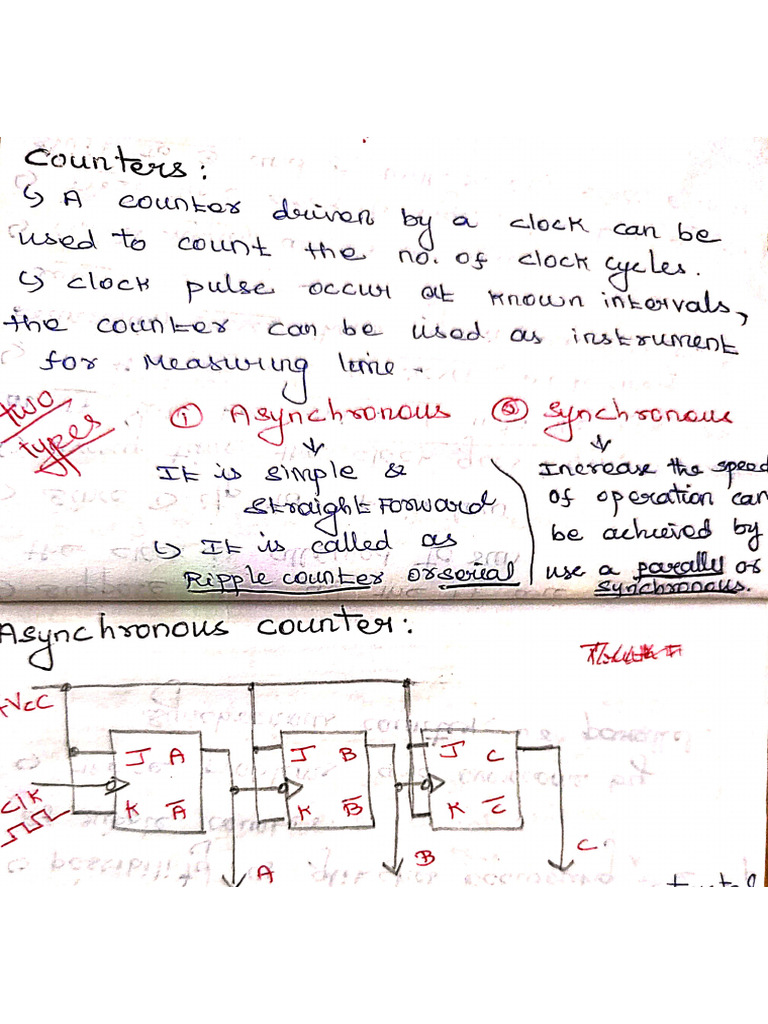 Counters:
↳ A counter driven by a clock can be
used to count the no. of clock cycles.
↳ clock pulse occur at known intervals,
the counter can be used as instrument
for measuring time.
two types. ① Asynchronous ② Synchronous
It is simple &
straight forward
↳ It is called as
Ripple counter or serial
Increase the speed
of operation can
be achieved by
use a parally or
synchronous.
Asynchronous counter:
+Vcc
J A J B J C
Clk
K A̅ K B̅ K C̅
A B C